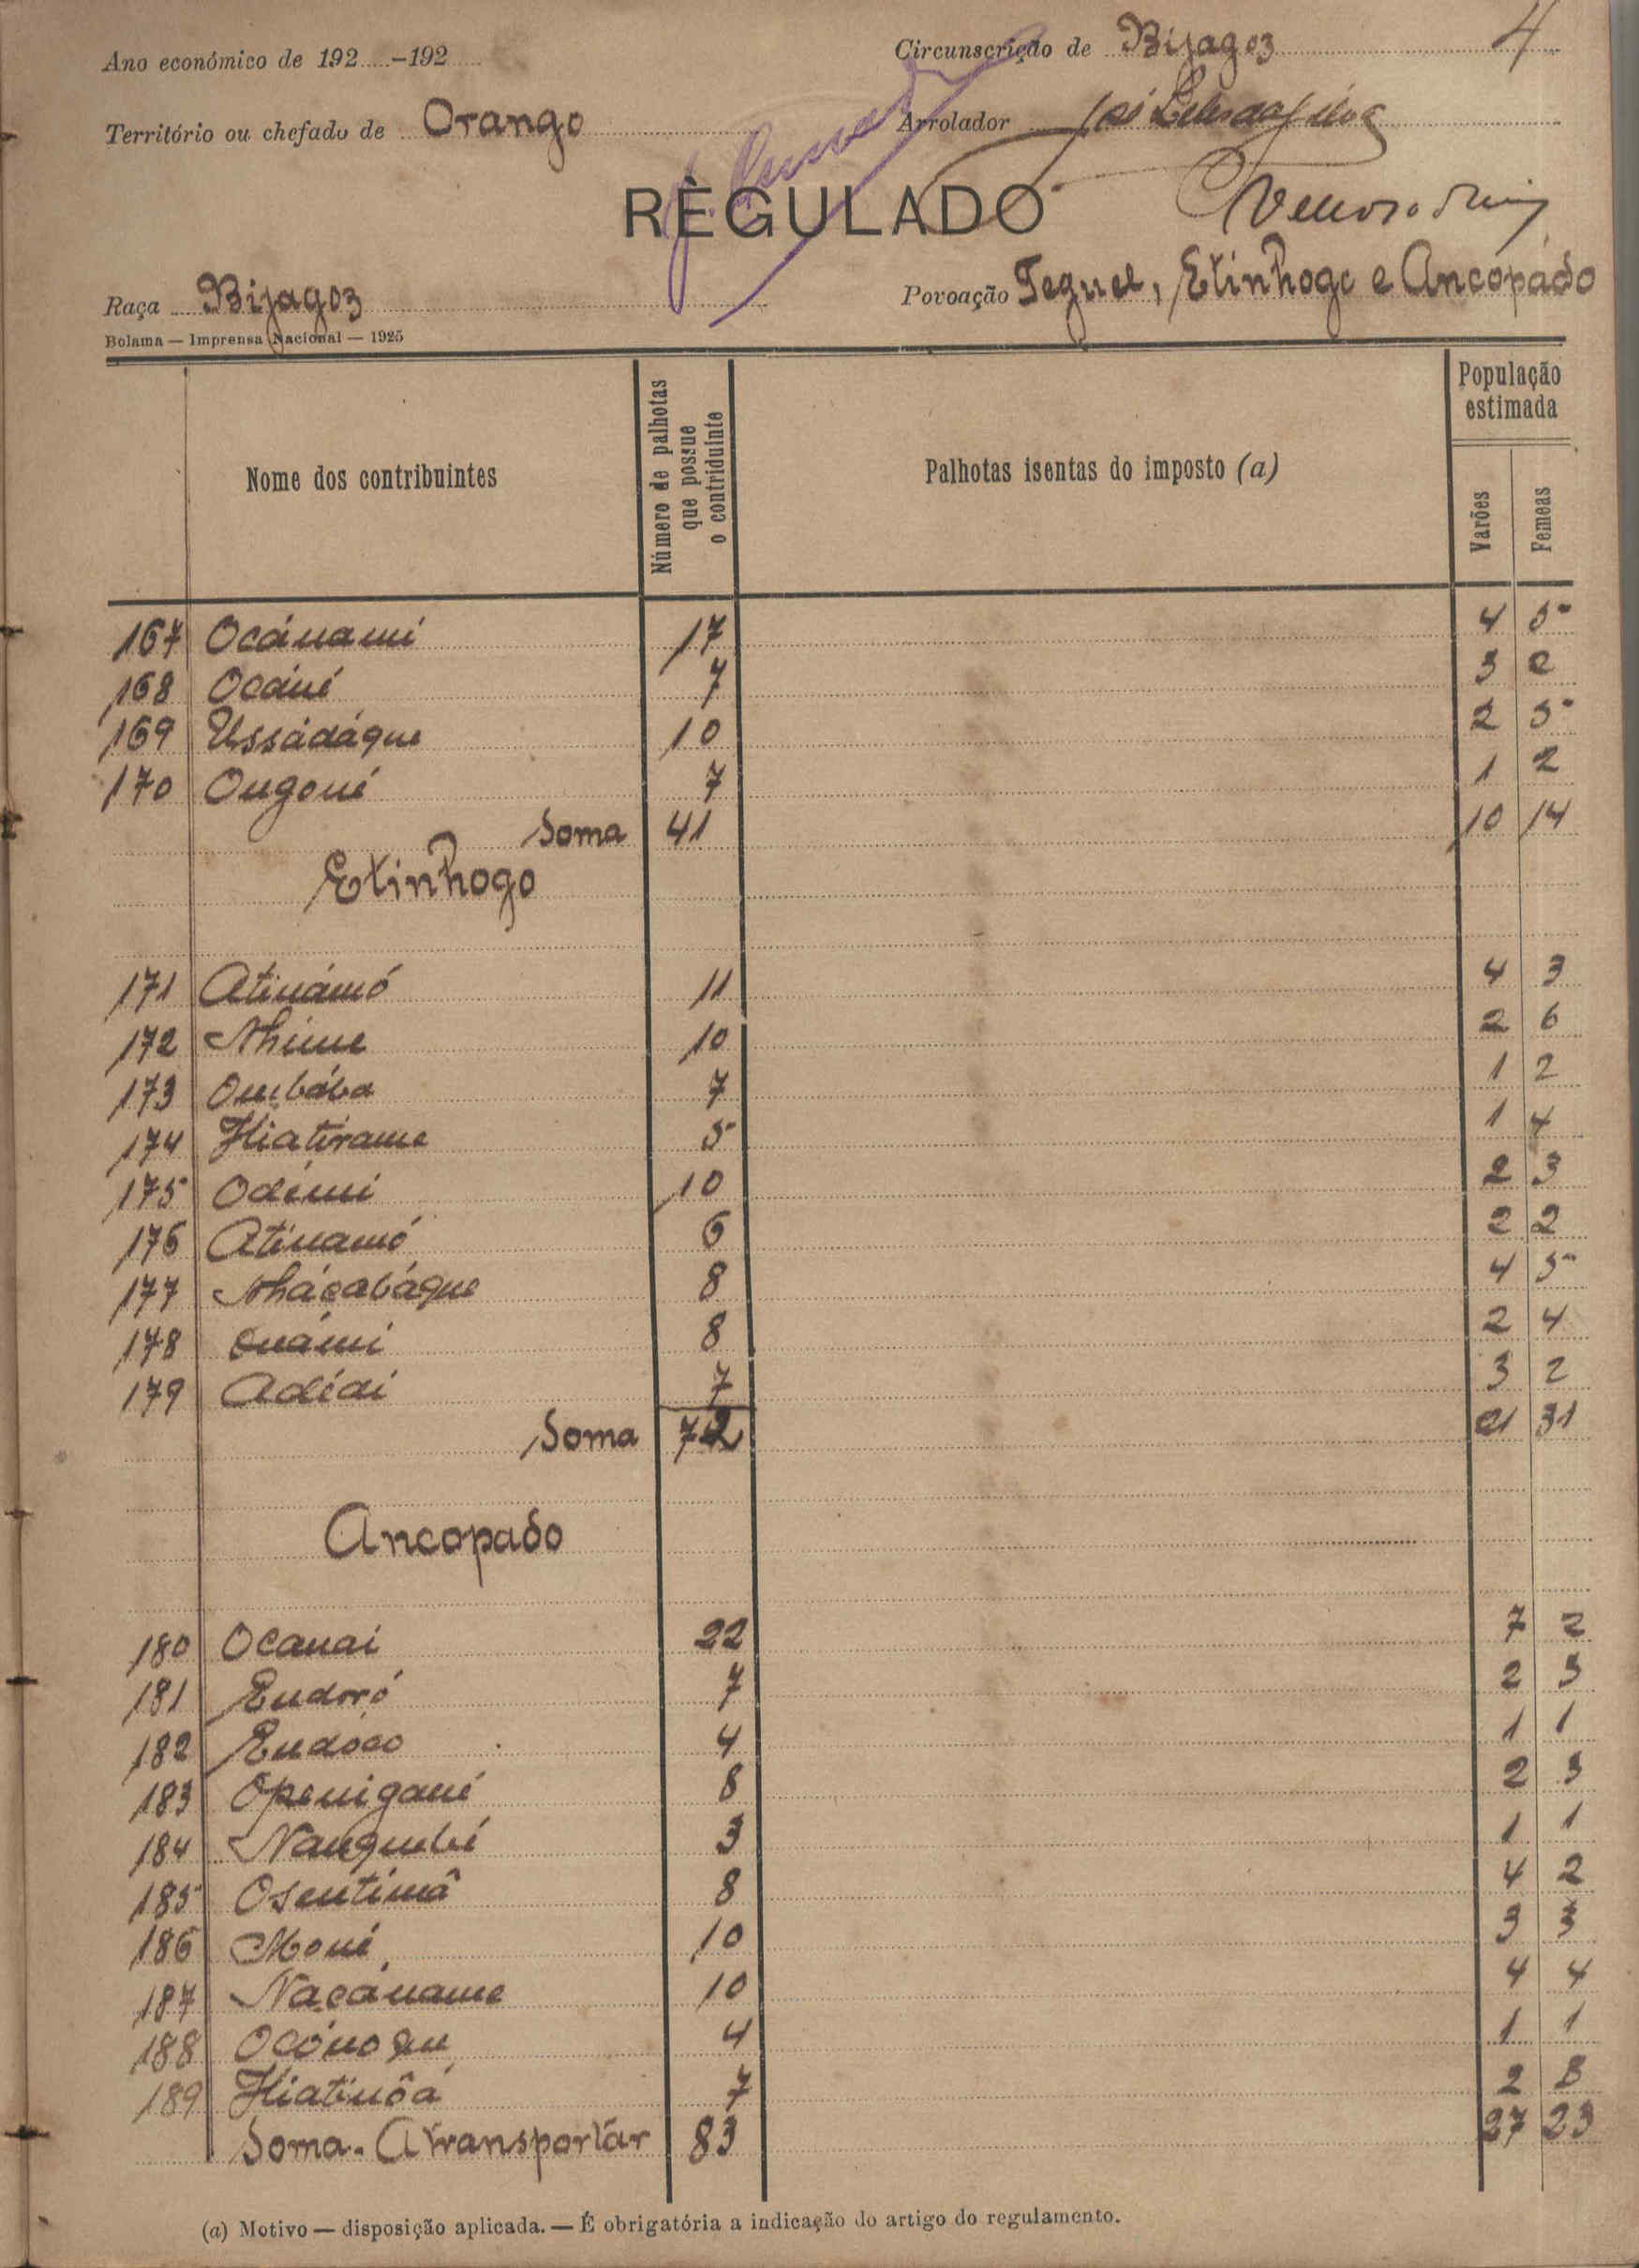 4
Ano económico de 192.....-192..... Circunscrição de Bijagoz
Território ou chefado de Orango Arrolador
REGULADO
Raça Bijagoz Povoação Teguel, Etinhogo e Ancopádo
Bolama — Imprensa Nacional — 1925
Nome dos contribuintes
Número de palhotas que possue o contriduinte
Palhotas isentas do imposto (a)
População estimada
Varões Femeas
167 Ocánami 17 4 5
168 Ocáné 7 3 2
169 Ussádáque 10 2 5
170 Ongoné 7 1 2
Soma 41 10 14
Etinhogo
171 Atinámó 11 4 3
172 Nhime 10 2 6
173 Ombába 7 1 2
174 Hiatirame 5 1 4
175 Odémi 10 2 3
176 Atinamó 6 2 2
177 Nhácabáque 8 4 5
178 8 2 4
179 Adidi 7 3 2
Soma 72 21 31
Ancopado
180 Ocanai 22 7 2
181 Endoró 7 2 3
182 Endóco 4 1 1
183 Openigané 8 2 3
184 Nanguebé 3 1 1
185 Osentimâ 8 4 2
186 Moné 10 3 3
187 Nacáname 10 4 4
188 4 1 1
189 Hiatinôá 7 2 3
Soma. A transportar 83 27 23
(a) Motivo — disposição aplicada. — É obrigatória a indicação do artigo do regulamento.